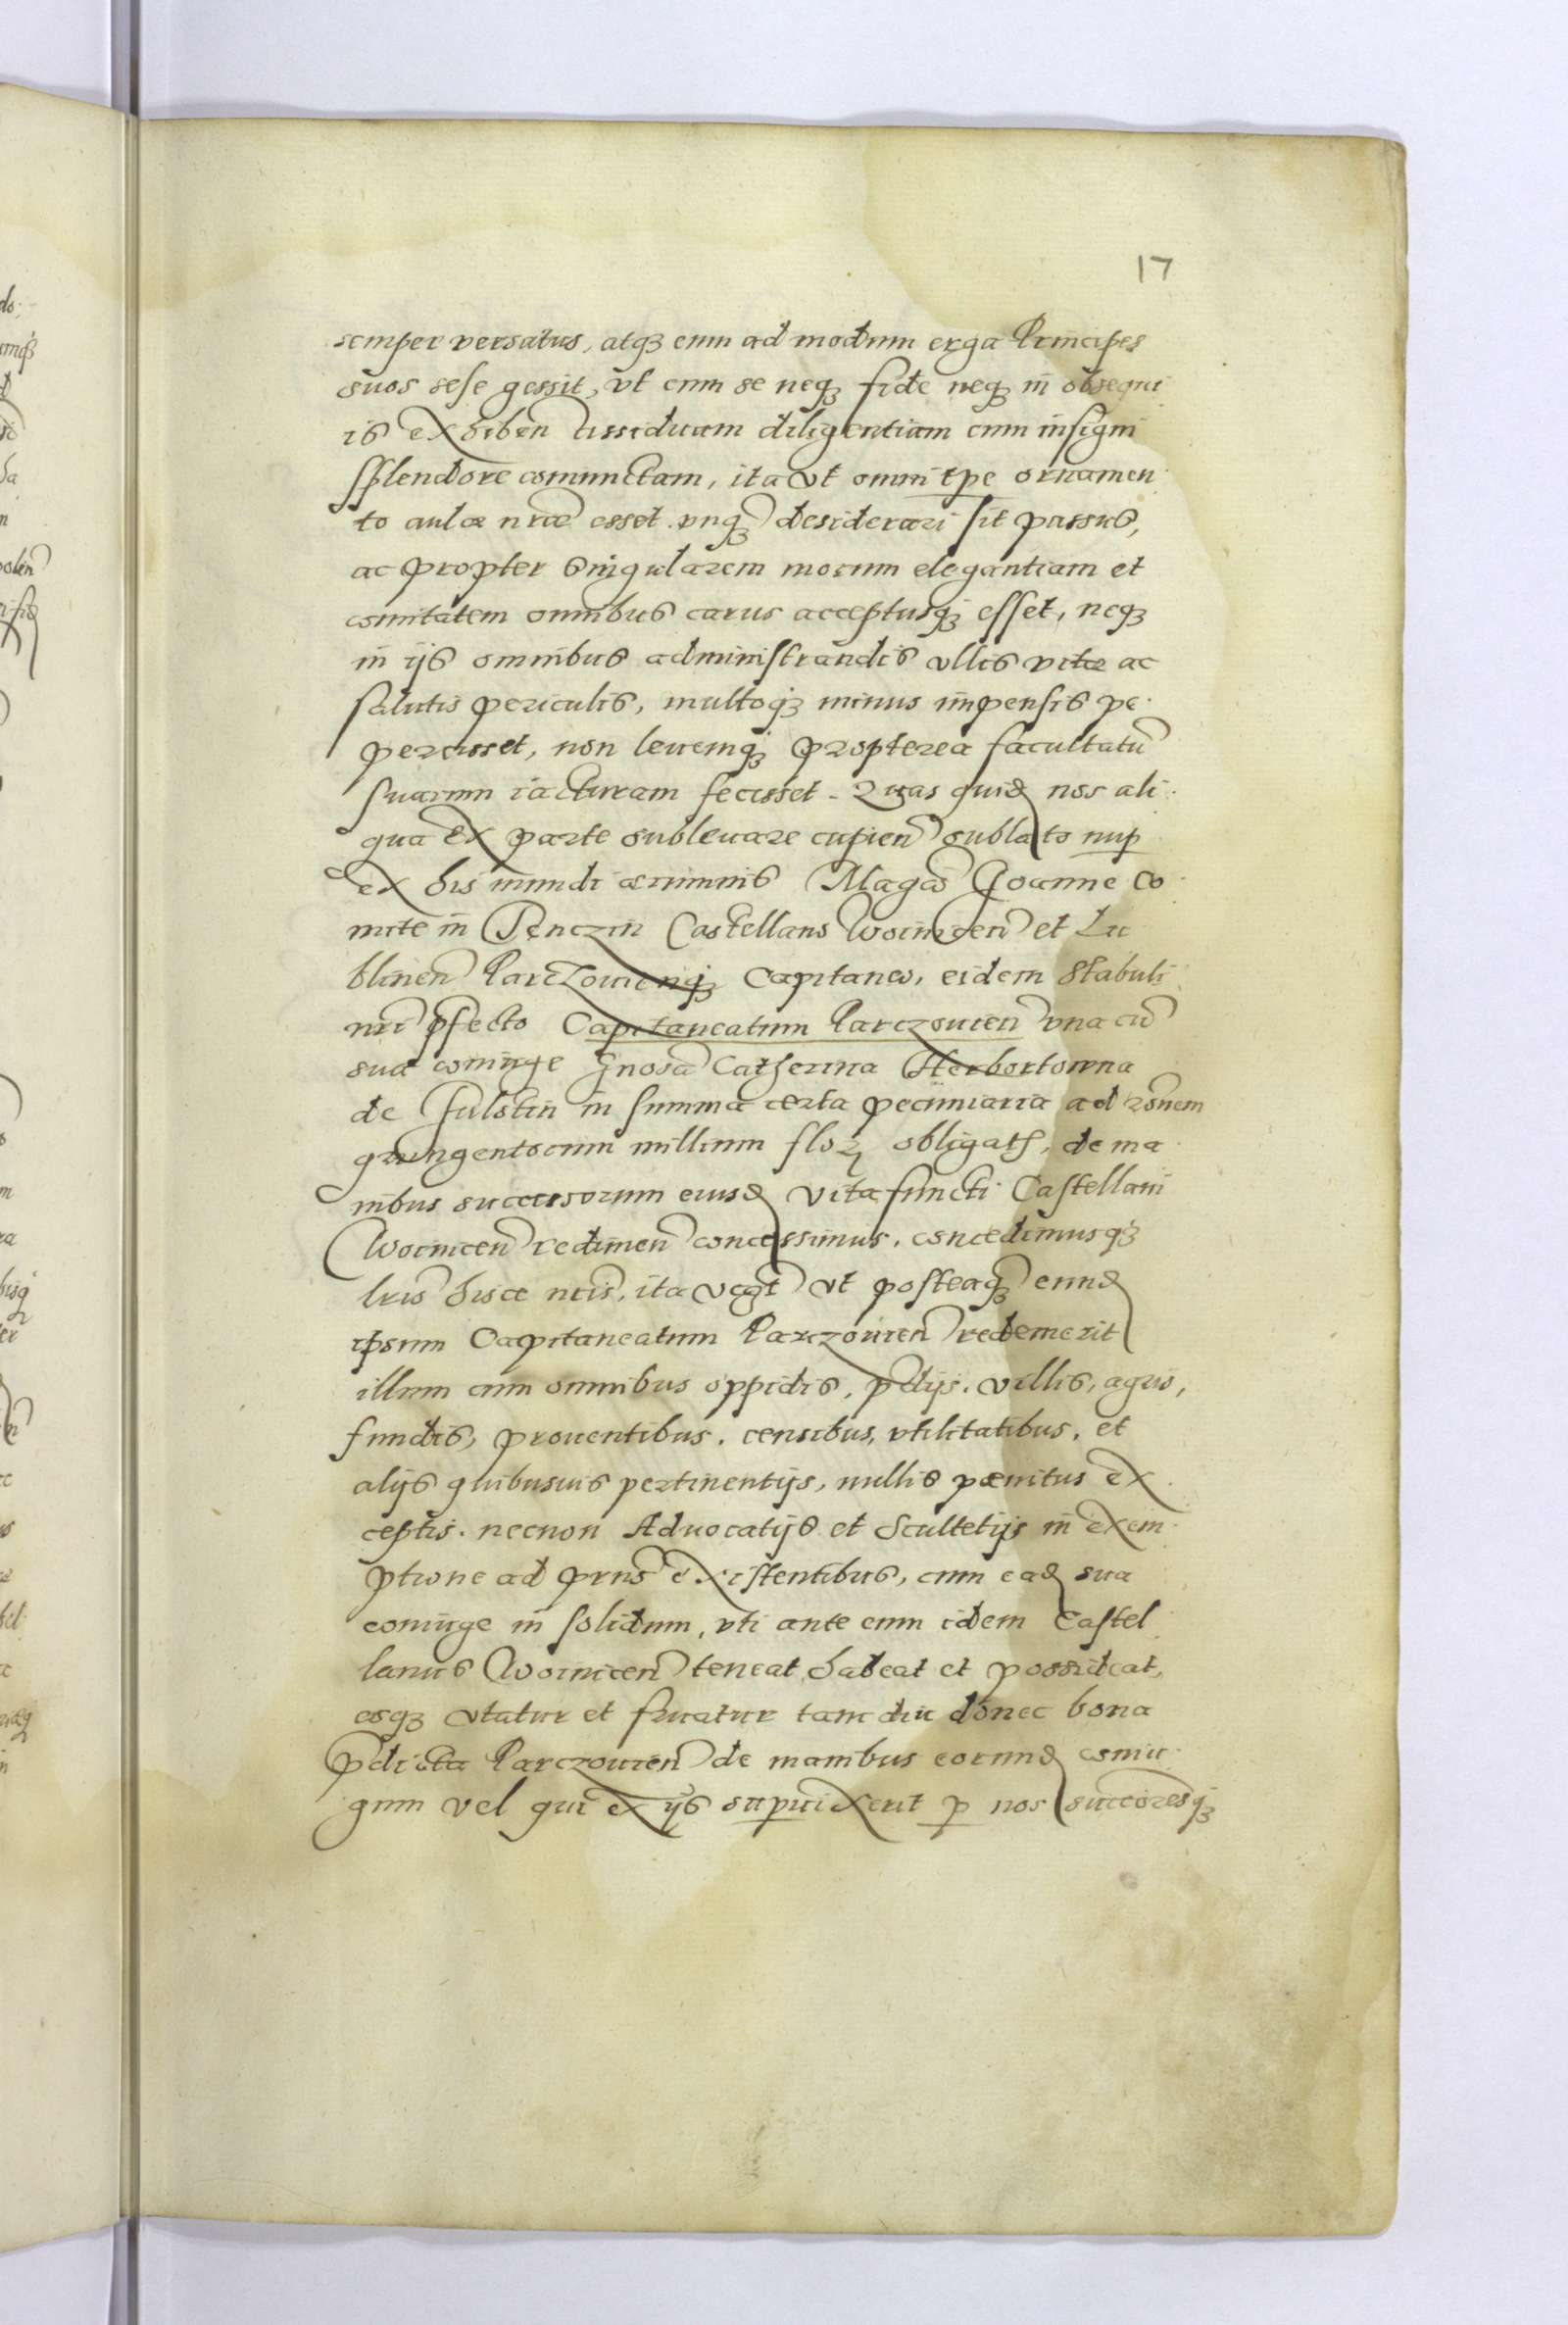 17
semper versatus, atqꝫ eum ad modum erga Principes
suos sese gessit, vt cum se neqꝫ fide neqꝫ in obsequi
is exhibeñ assiduam diligentiam cum insigni
splendore coniunctam, ita vt omni tpe ornamen
to aulæ nræ esset vnqꝫ desiderari sit passus,
ac propter singularem morum elegantiam et
comitatem omnibus carus acceptusqꝫ esset, neqꝫ
in ijs omnibus administrandis vllis vitæ ac
salutis periculis, multoqꝫ minus impensis pe
percisset, non leuemqꝫ propterea facultatū
suarum iacturam fecisset. Quas quid̄ nos ali
qua ex parte subleuare cupieñ sublato nuꝑ
ex his mundi ærumnis Magco Joanne Co
mite in Tenczin Castellano Woiniceñ et Lu
blineñ Parczouieñqꝫ Capitaneo, eidem stabuli
nri pfecto Capitaneatum Parczouieñ vna cū
sua coniuge Gnosa Catherina Herbortowna
de Fulstin in summa certa pecuniaria ad rõnem
quingentorum millium floꝝ obligatū, de ma
nibus successorum eiusd̄ vita functi Castellani
Woiniceñ redimeñ concessimus, concedimusqꝫ
lris hisce nris, ita vt posteaqꝫ eund̄
ipsum Capitaneatum Parczouieñ redemerit
illum cum omnibus oppidis, pdijs, villis, agris,
fundis, prouentibus, censibus, vtilitatibus, et
alijs quibusuis pertinentijs, nullis pænitus ex
ceptis, necnon Aduocatijs et Scultetijs in exem
ptione ad prns existentibus, cum ead̄ sua
coniuge in solidum, vti ante eum idem Castel
lanus Woiniceñ teneat, habeat et possideat,
eoqꝫ vtatur et fruatur tam diu donec bona
pdicta Parczouieñ de manibus eorund̄ coniu
gum vel qui ex ijs supuixerit ꝑ nos successoresqꝫ